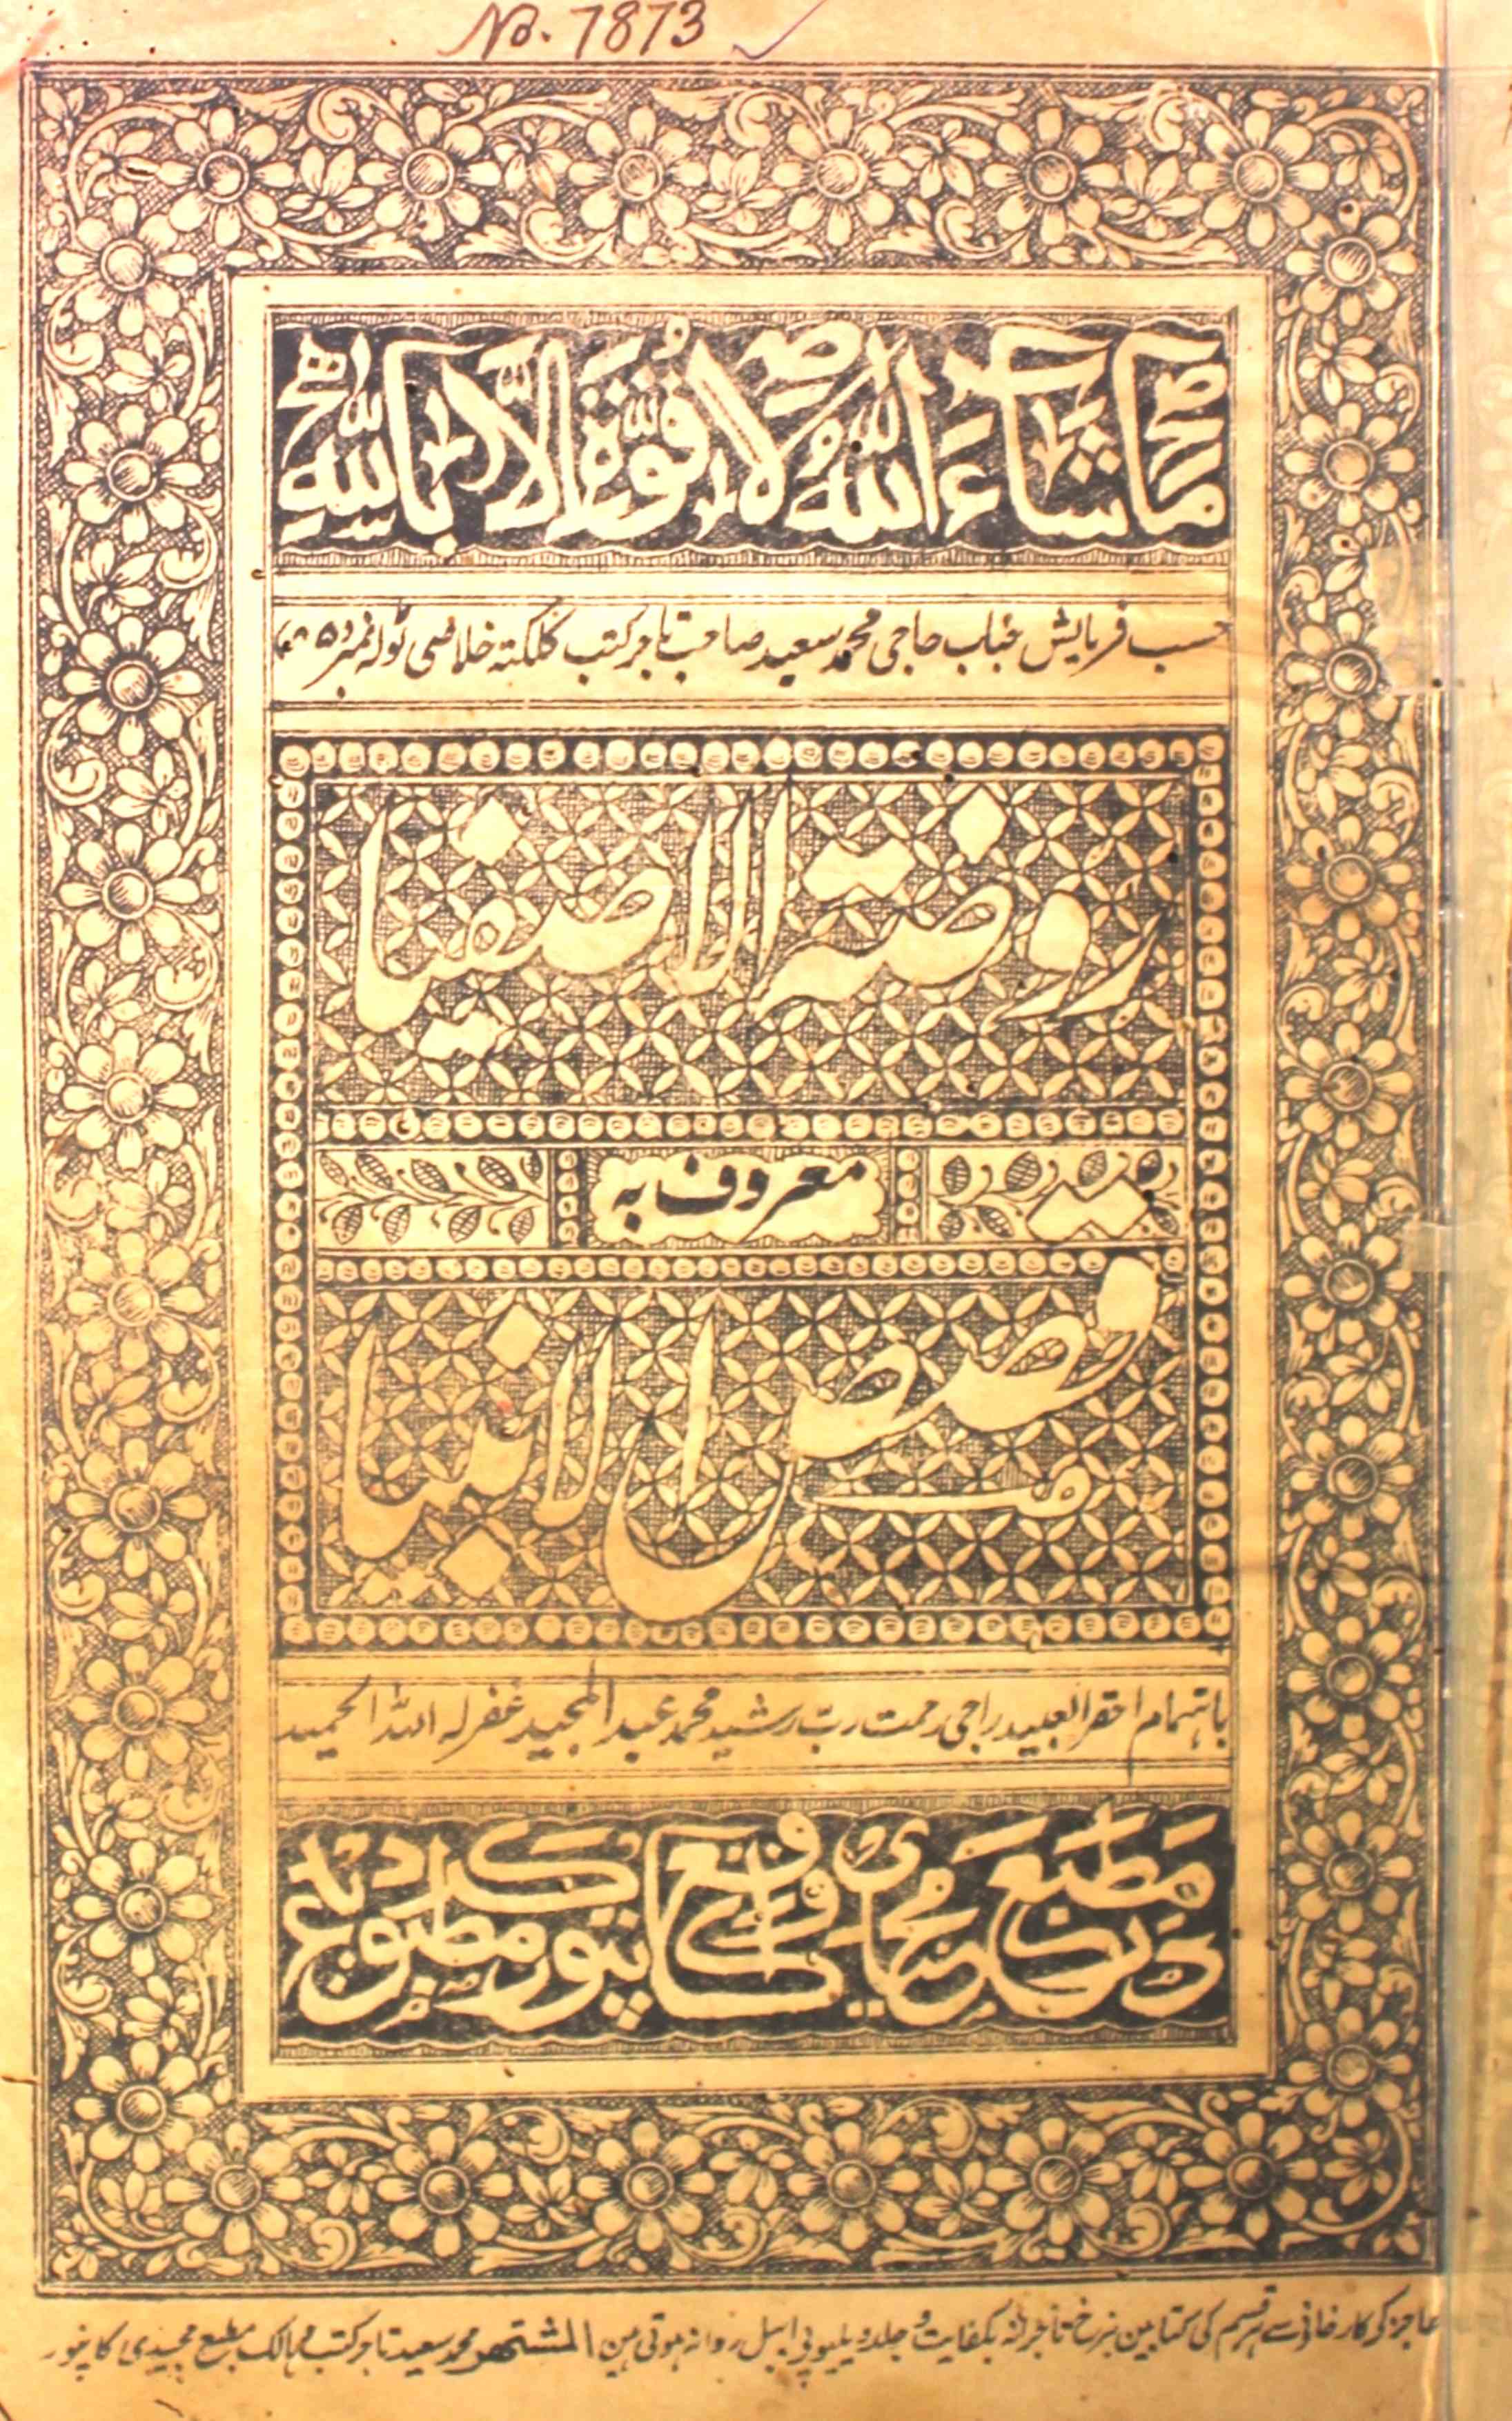 No. 7873
ما شاء اللهُ لا قُوّة الا بالله
حسب فرمایش جناب حاجی محمد سعید صاحب تاجر کتب کلکتہ خلاصی ٹولہ نمبر
روضتہ الاصفیا
معروف بہ
قصص الانبیا
باہتمام احقر العبید راجی رحمت رب رشید محمد عبد المجید غفر لہ اللہ الحمید
مطبع مجیدی واقع کانپور مطبوع گردید
عاجز کے کارخانے سے ہر قسم کی کتابین بنرخ تاجرانہ بکفایت و جلد ویلیو پی ایبل روانہ ہوتی ہین المشتھر محمد سعید تاجر کتب و مالک مطبع مجیدی کانپور